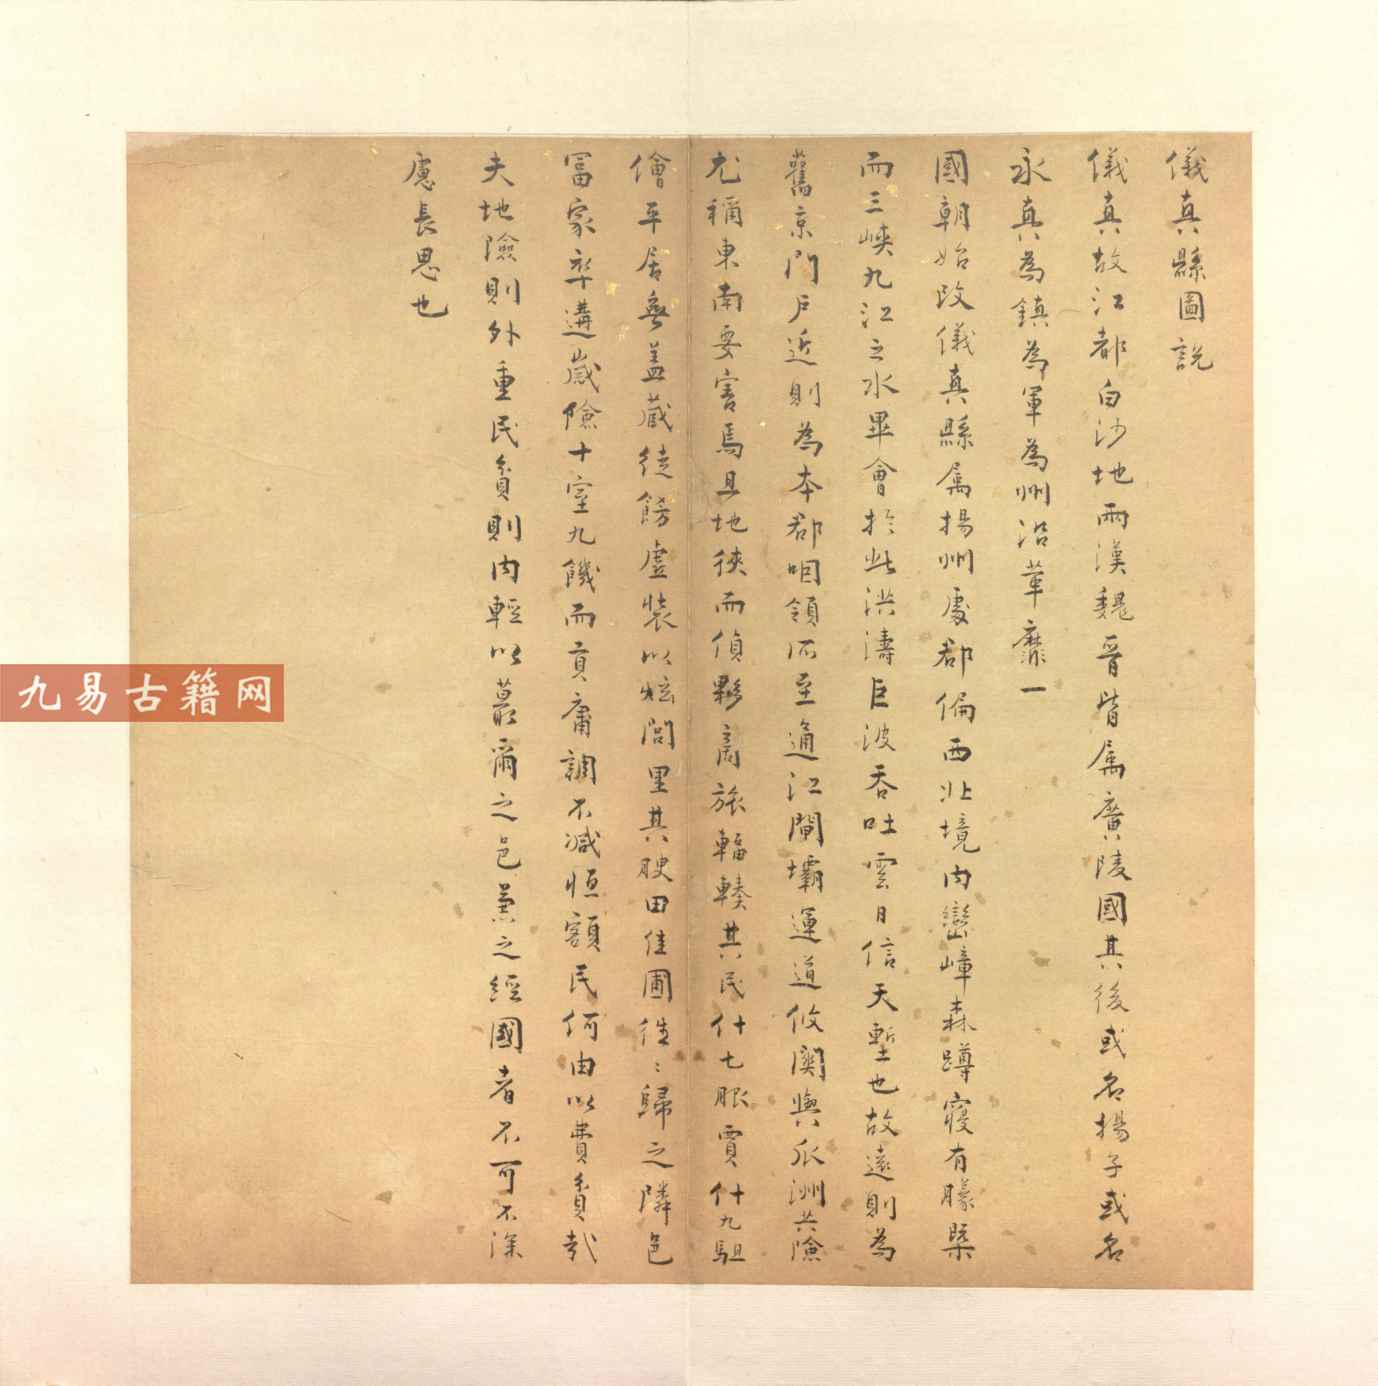 儀真縣圖説
儀真故江都白沙地兩漢魏晉皆属廣陵國其後或名揚子或名
永真為鎮為軍為州沿革靡一
國朝始改儀真縣属揚州處郡偏西北境内巒嶂森蹲寝有朦㮣
而三峽九江之水畢會於此洪濤巨波吞吐雲日信天塹也故遠則為
舊京門戶近則為本郡咽領所至通江閘壩運道攸関與瓜洲共險
尤稱東南要害焉且地狹而偵夥商旅輻輳其民什七服賈什九駔
儈平居無盖蔵徒餝虛裝以炫閭里其腴田佳圃徃〻歸之隣邑
冨家卒遘歲險十室九饑而貢庸調不減恒額民何由以費貟哉
夫地險則外重民貟則内輕以蕞爾之邑兼之經國者不可不深
慮長思也
九易古籍网